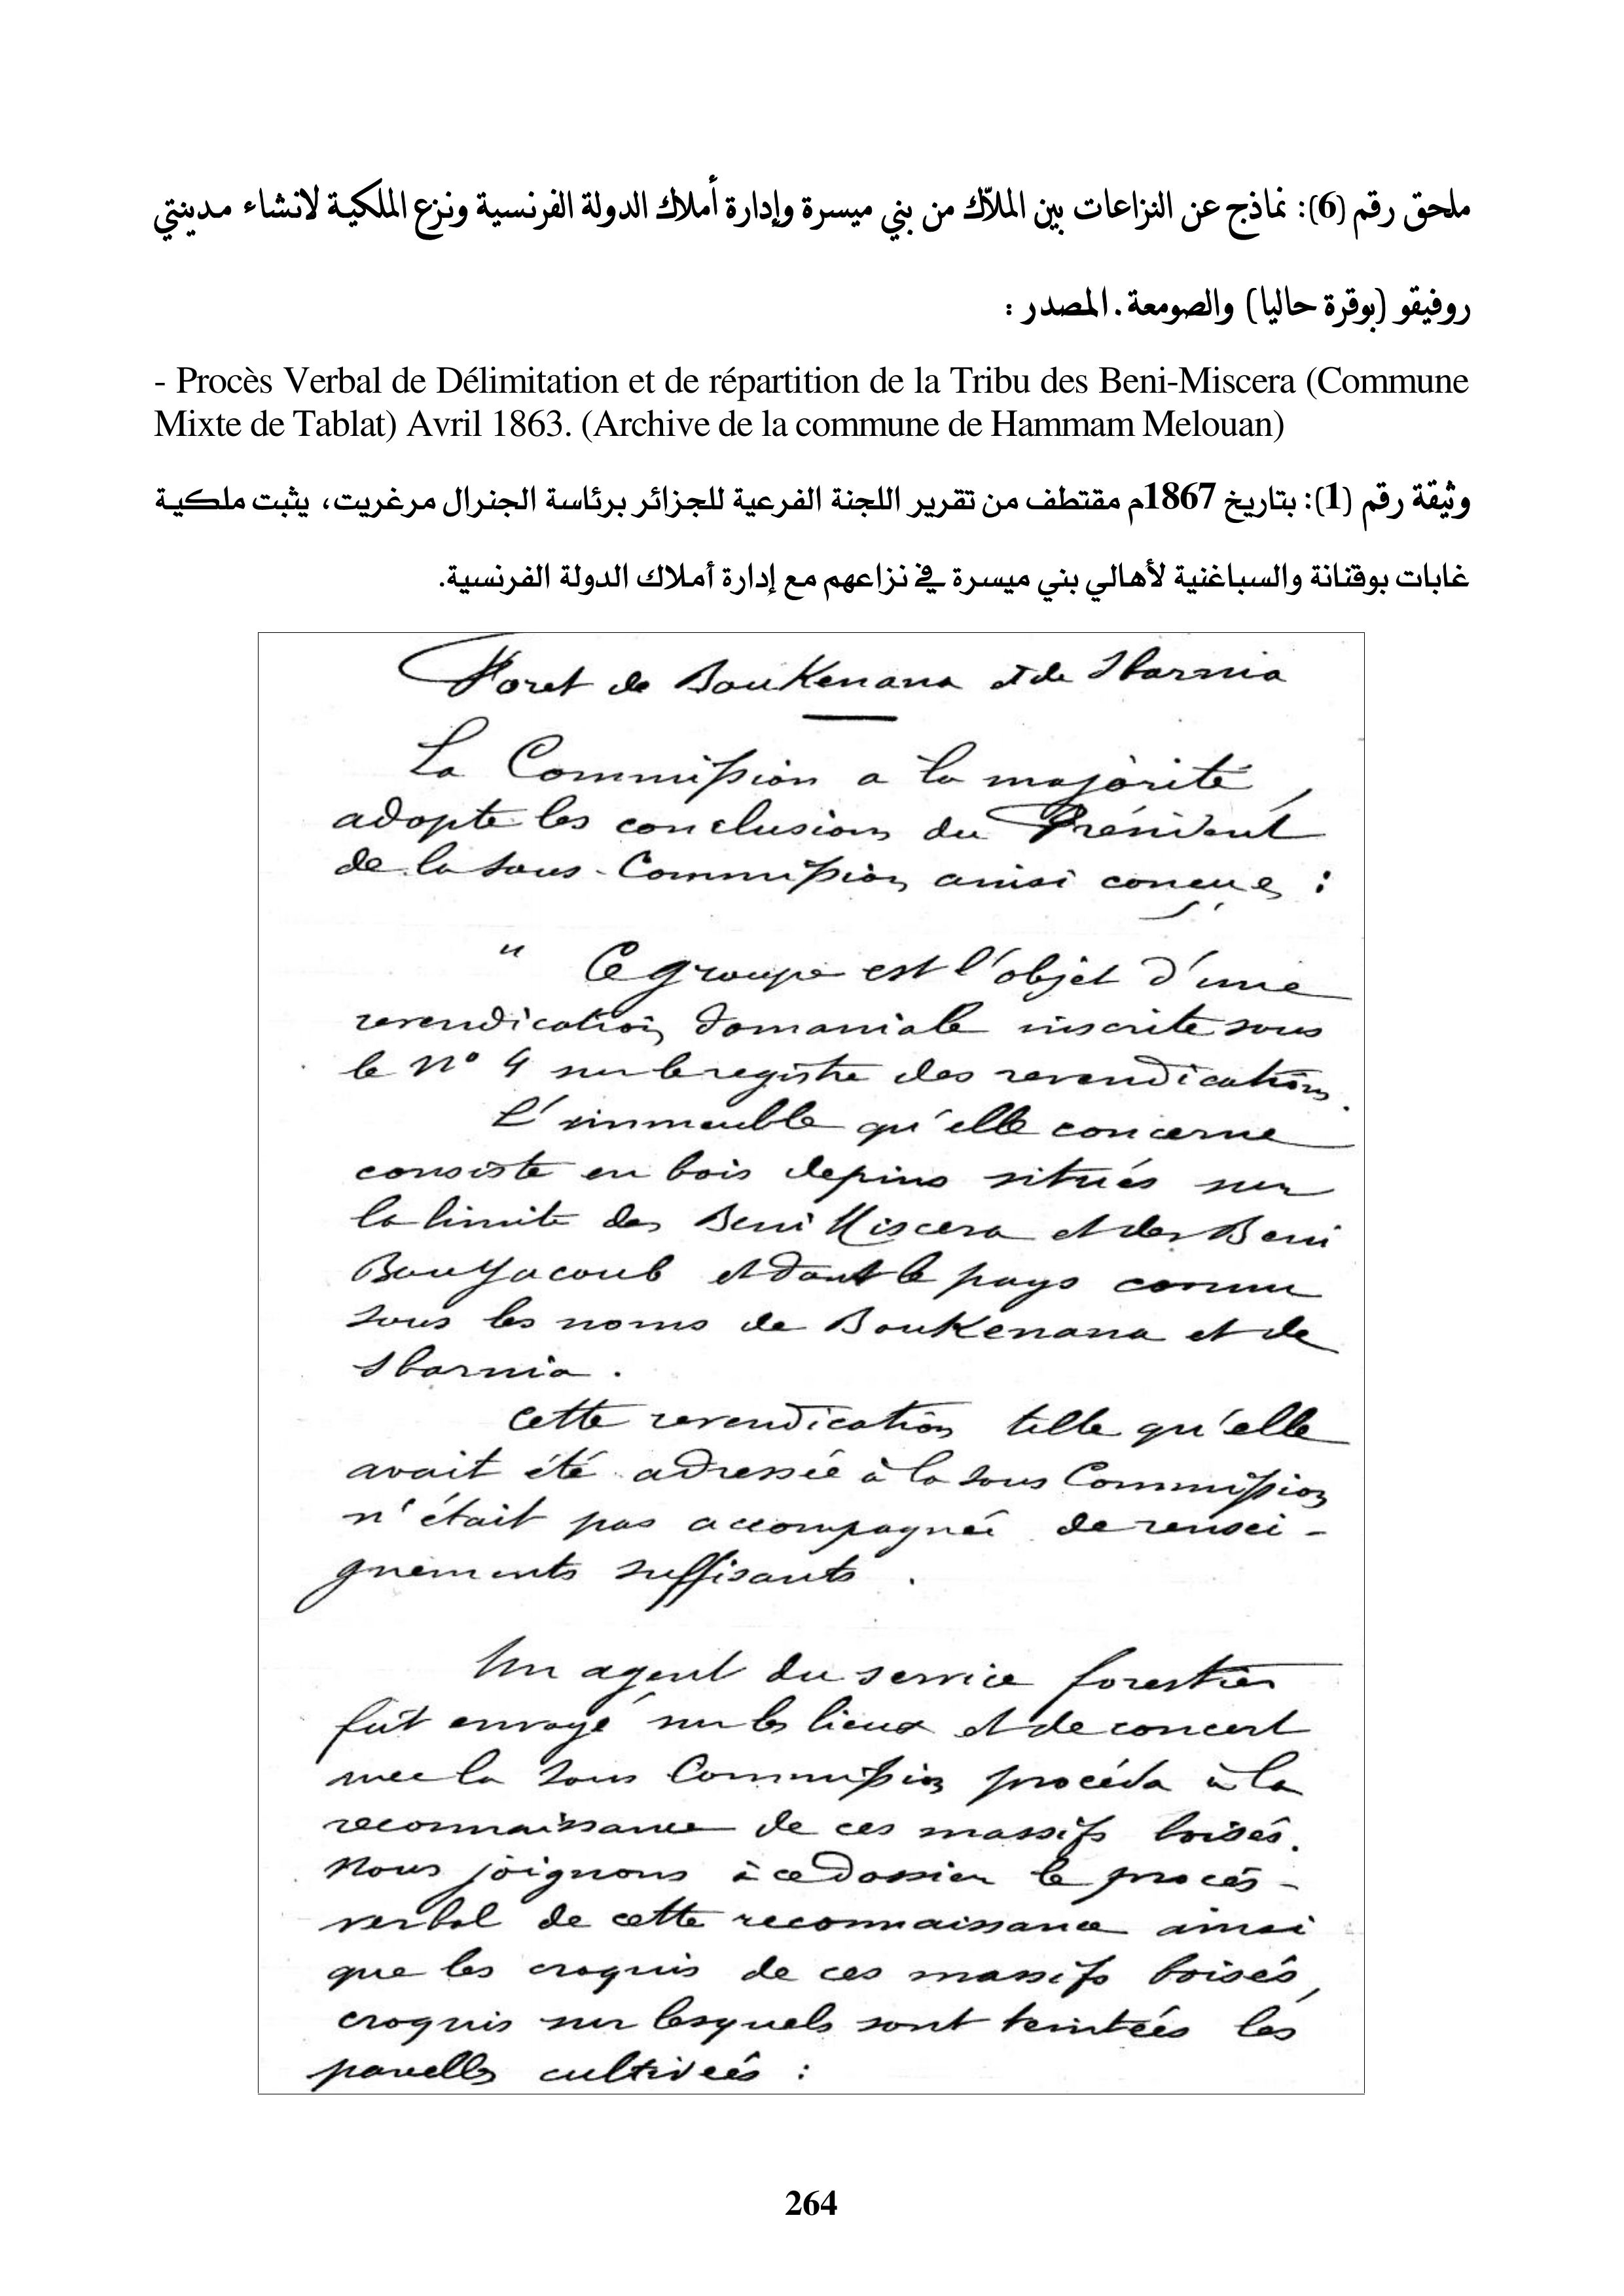 ملحق رقم (6): نماذج عن النزاعات بين الملاّك من بني ميسرة وإدارة أملاك الدولة الفرنسية ونزع الملكية لانشاء مدينتي
روفيقو (بوقرة حاليا) والصومعة. المصدر :
- Procès Verbal de Délimitation et de répartition de la Tribu des Beni-Miscera (Commune
Mixte de Tablat) Avril 1863. (Archive de la commune de Hammam Melouan)
وثيقة رقم (1): بتاريخ 1867م مقتطف من تقرير اللجنة الفرعية للجزائر برئاسة الجنرال مرغريت، يثبت ملكية
غابات بوقنانة والسباغنية لأهالي بني ميسرة في نزاعهم مع إدارة أملاك الدولة الفرنسية.
Foret de BouKenana et de
La Commission a la majorité,
adopte les conclusions du Président
de la sous-Commission ainsi conçues :
" Ce groupe est l'objet d'une
revendication domaniale inscrite sous
le N° 4 sur le registre des revendications.
L'immeuble qu'elle concerne
consiste en bois de pins situés sur
la limite des Beni Miscera et des Beni
Bou Yacoub et dont le pays connu
sous les noms de BouKenana et de
cette revendication telle qu'elle
avait été adressée à la sous Commission
n'était pas accompagnée de rensei-
gnements suffisants.
Un agent du service forestier
fût envoyé sur les lieux et de concert
avec la sous Commission procéda à la
reconnaissance de ces massifs boisés.
Nous joignons à ce dossier le procés-
verbal de cette reconnaissance ainsi
que les croquis de ces massifs boisés,
croquis sur lesquels sont teintées les
parcelles cultivées :
264